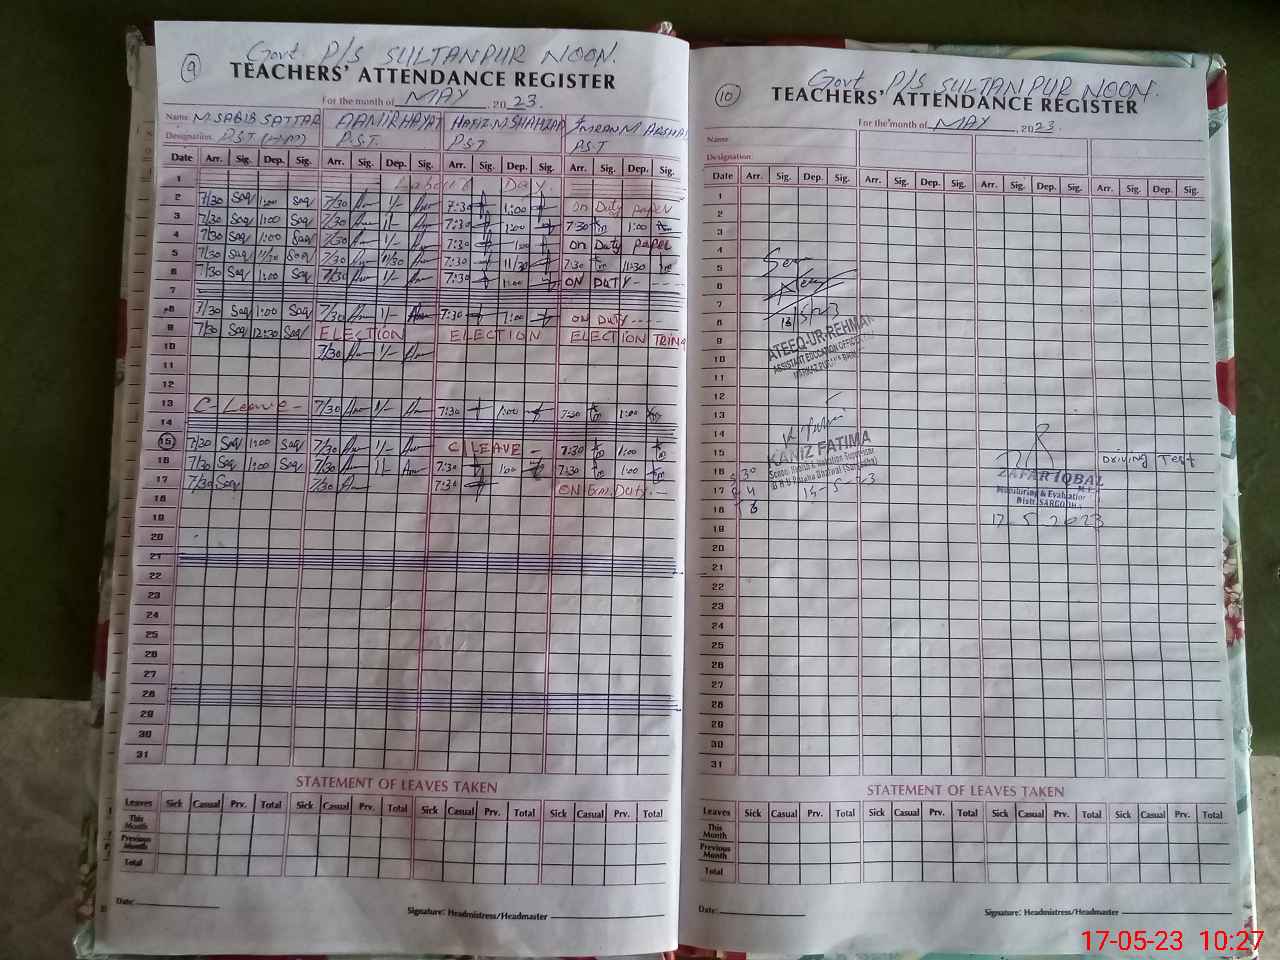 9
Govt. P/S SULTANPUR NOON.
TEACHERS' ATTENDANCE REGISTER
For the month of MAY , 2023.
Name: M.SABIR SATTAR AAMIR HAYAT HAFIZ.M.SHAHZAD IMRAN M ARSHAD
Designation: P.S.T (HM) P.S.T. P.S.T P.S.T
Date Arr. Sig. Dep. Sig. Arr. Sig. Dep. Sig. Arr. Sig. Dep. Sig. Arr. Sig. Dep. Sig.
1 Labour Day.
2 7/30 1:00 7/30 1/- 7:30 1:00 on Duty paper
3 7/30 1:00 7/30 1/- 7:30 1:00 7:30 1:00
4 7/30 1:00 7/30 1/- 7:30 1:00 on Duty paper
5 7/30 11/30 7/30 11/30 7:30 11/30 7:30 11:30
6 7/30 1:00 7/30 1/- 7:30 1:00 ON DUTY- - - - -
7
8 7/30 1:00 7/30 1/- 7:30 1:00 on DUTY - - - -
9 7/30 12:30 ELECTION ELECTION ELECTION
10 7/30 1/-
11
12
13 C- Leave - 7/30 1/- 7:30 1:00 7:30 1:00
14
15 7/30 1:00 7/30 1/- C/LEAVE - 7:30 1:00
16 7/30 1:00 7/30 1/- 7:30 1:00 7:30 1:00
17 7/30 7/30 7:30 ON Em. Duty. -
18
19
20
21
22
23
24
25
26
27
28
29
30
31
STATEMENT OF LEAVES TAKEN
Leaves Sick Casual Prv. Total Sick Casual Prv. Total Sick Casual Prv. Total Sick Casual Prv. Total
This Month
Previous Month
Total
Date:
Signature: Headmistress/Headmaster
10
Govt P/S SULTANPUR NOON.
TEACHERS' ATTENDANCE REGISTER
For the month of MAY , 2023.
Name:
Designation:
Date Arr. Sig. Dep. Sig. Arr. Sig. Dep. Sig. Arr. Sig. Dep. Sig. Arr. Sig. Dep. Sig.
1
2
3
4
5
6
7
8
9
10
11
12
13
14
15
16
17
18
19
20
21
22
23
24
25
26
27
28
29
30
31
Seen
ATEEQ-UR-REHMAN
ASSISTANT EDUCATION OFFICER
KANIZ FATIMA
School Health & Nutrition Supervisor
15-5-23
ZAFAR IQBAL
Monitoring & Evaluation
Distt. SARGODHA
17-5-2023
DRIVING Test
STATEMENT OF LEAVES TAKEN
Leaves Sick Casual Prv. Total Sick Casual Prv. Total Sick Casual Prv. Total Sick Casual Prv. Total
This Month
Previous Month
Total
Date:
Signature: Headmistress/Headmaster
17-05-23 10:27